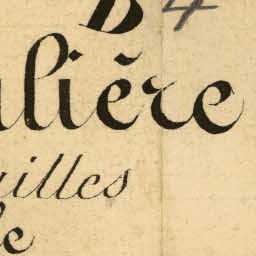 B 4
lière
illes
le